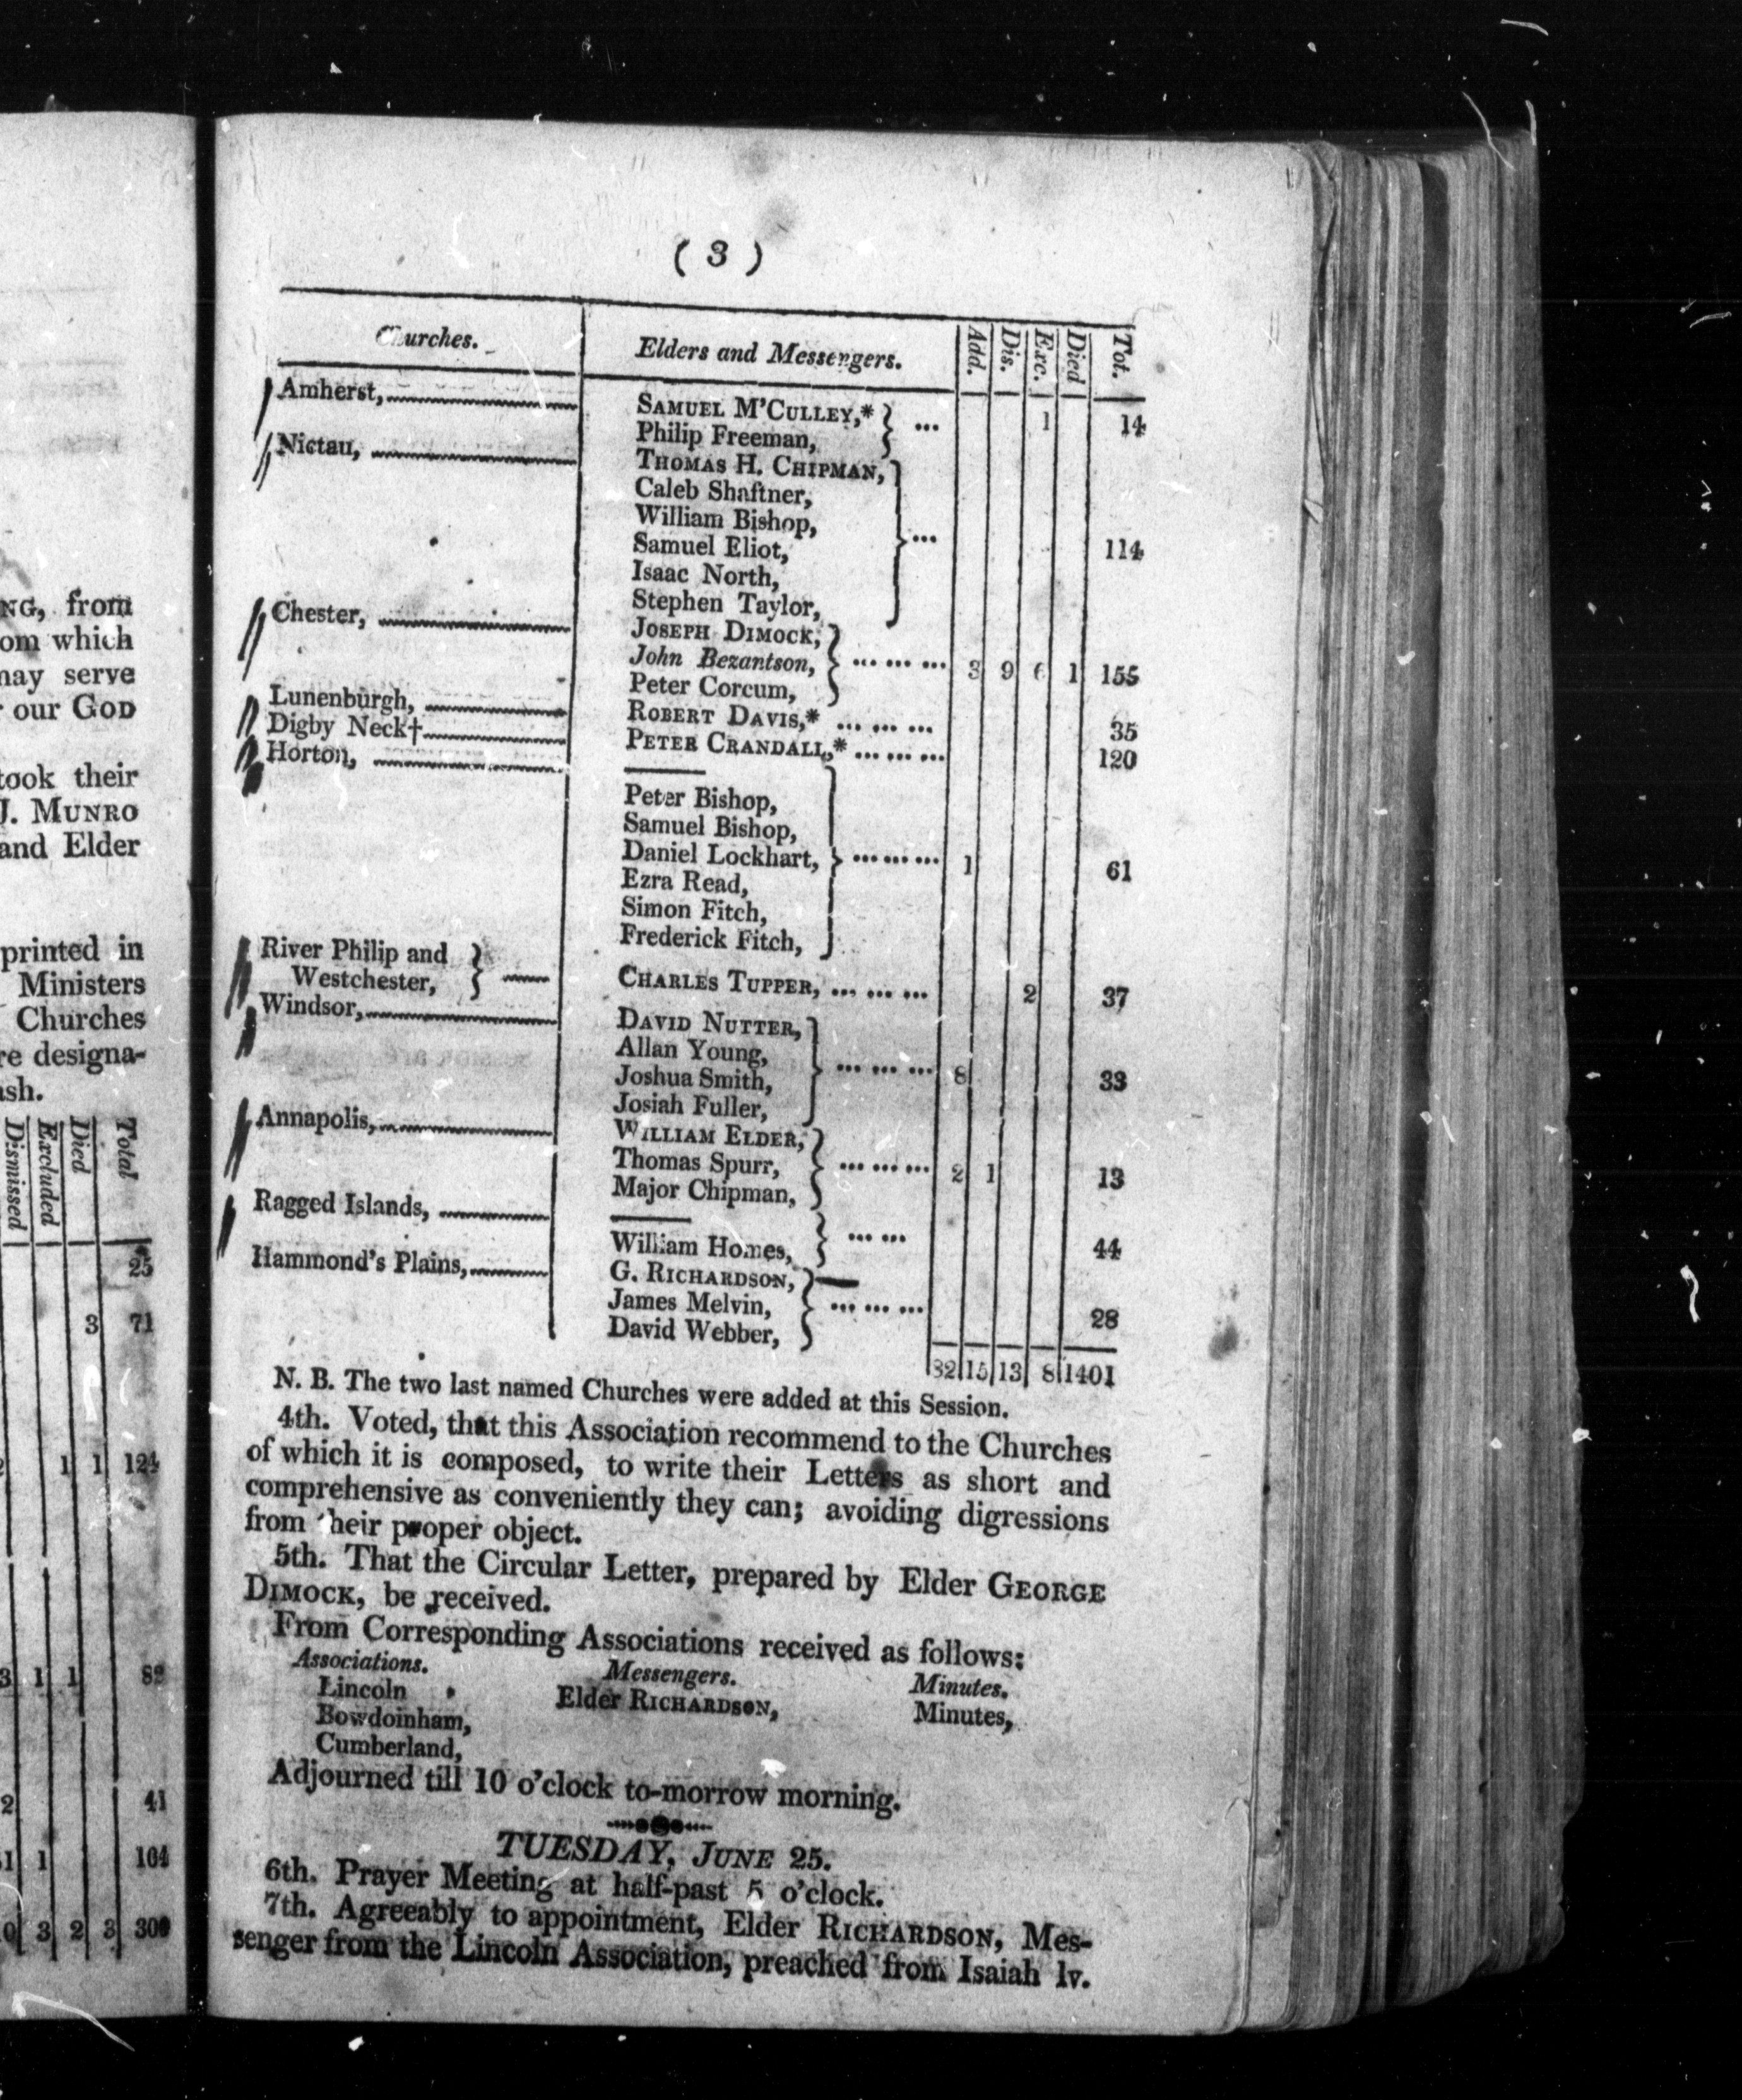 NG, from
om which
may serve
our GOD
took their
J. MUNRO
and Elder
printed in
Ministers
Churches
re designa-
ash.
Dismissed Excluded Died Total
25
3 71
1 1 124
3 1 1
2 41
1 1 104
0 3 2 3
( 3 )
Churches. Elders and Messengers. Add. Dis. Exc. Died Tot.
Amherst, SAMUEL M'CULLEY,* } ... 1 14
Philip Freeman,
Nictau, THOMAS H. CHIPMAN,
Caleb Shaftner,
William Bishop,
Samuel Eliot, } ... 114
Isaac North,
Stephen Taylor,
Chester, JOSEPH DIMOCK,
John Bezantson, } ... ... ... 3 9 6 1 155
Peter Corcum,
Lunenburgh, ROBERT DAVIS,* ... ... ... 35
Digby Neck† PETER CRANDALL,* ... ... ... 120
Horton, ———
Peter Bishop,
Samuel Bishop,
Daniel Lockhart, } ... ... ... 1 61
Ezra Read,
Simon Fitch,
Frederick Fitch,
River Philip and
Westchester, } CHARLES TUPPER, ... ... ... 2 37
Windsor, DAVID NUTTER,
Allan Young,
Joshua Smith, } ... ... ... 8 33
Josiah Fuller,
Annapolis, WILLIAM ELDER,
Thomas Spurr, } ... ... ... 2 1 13
Major Chipman,
Ragged Islands, ———
William Homes, } ... ... 44
Hammond's Plains, G. RICHARDSON,
James Melvin, } ... ... ... 28
David Webber,
32 15 13 8 1401
N. B. The two last named Churches were added at this Session.
4th. Voted, that this Association recommend to the Churches
of which it is composed, to write their Letters as short and
comprehensive as conveniently they can; avoiding digressions
from their proper object.
5th. That the Circular Letter, prepared by Elder GEORGE
DIMOCK, be received.
From Corresponding Associations received as follows:
Associations. Messengers. Minutes.
Lincoln Elder RICHARDSON, Minutes,
Bowdoinham,
Cumberland,
Adjourned till 10 o'clock to-morrow morning.
TUESDAY, JUNE 25.
6th. Prayer Meeting at half-past 5 o'clock.
7th. Agreeably to appointment, Elder RICHARDSON, Mes-
senger from the Lincoln Association, preached from Isaiah lv.